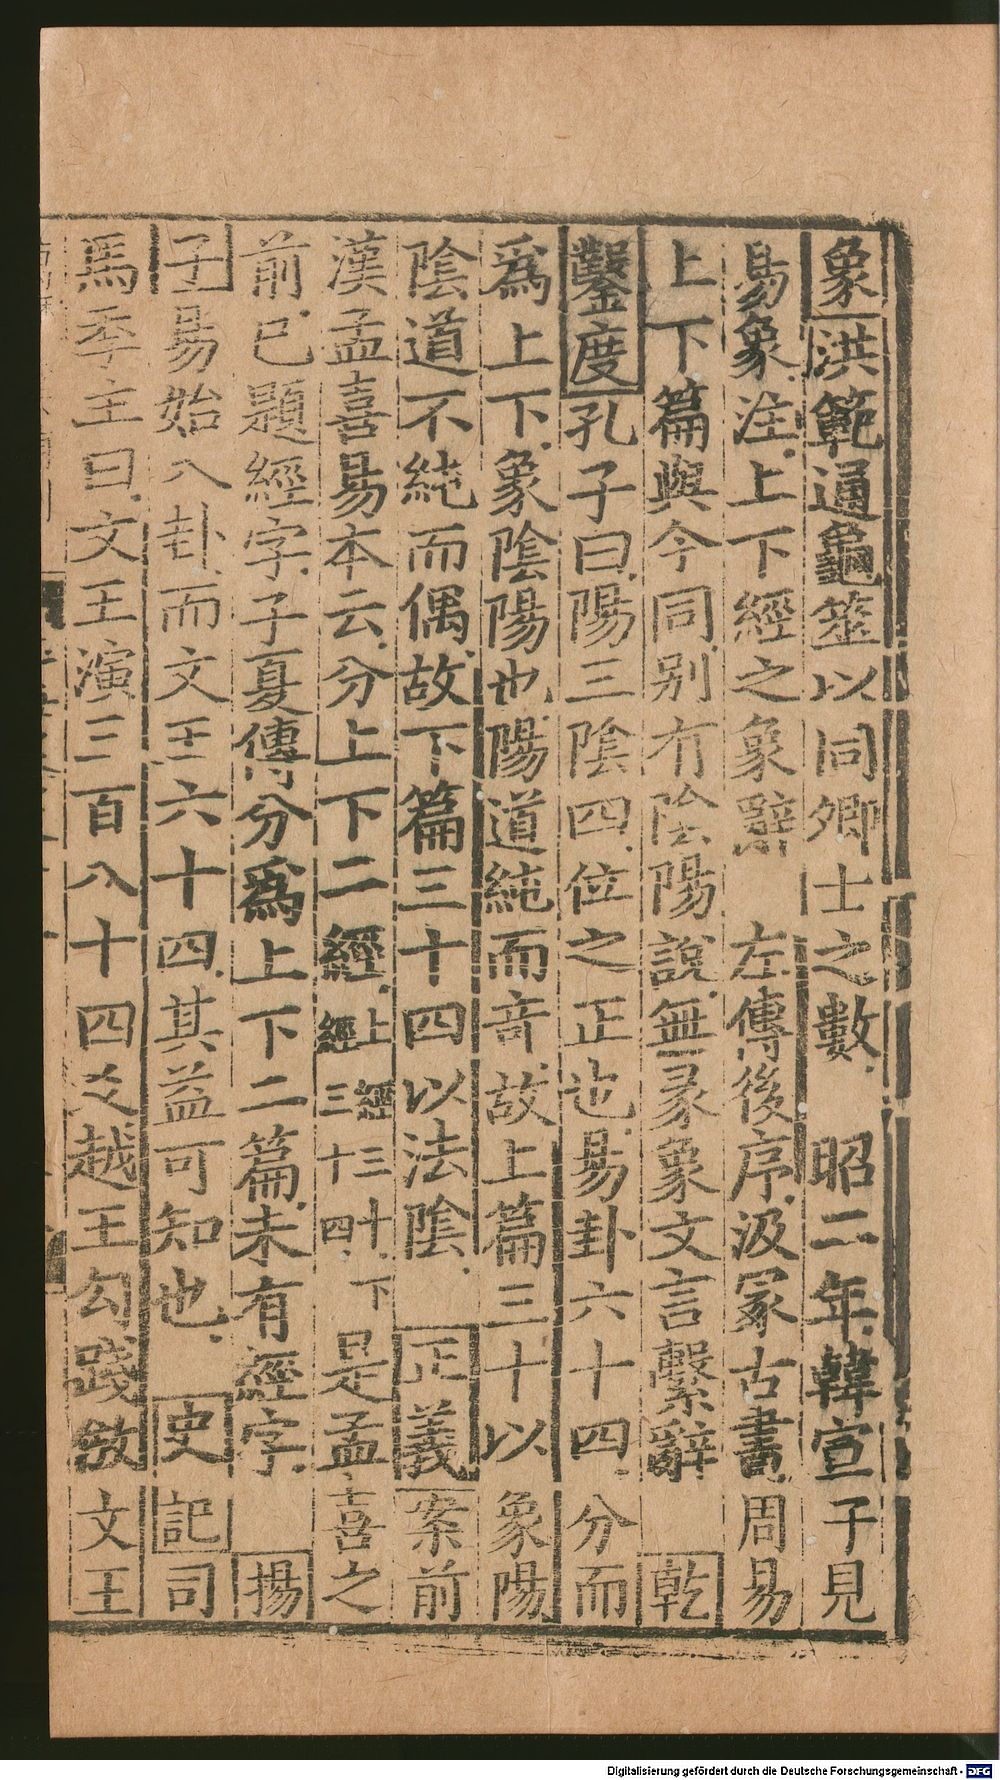 象洪範通龜筮以同卿士之數昭二年韓宣子見
易象注上下經之象辭左傳後序汲冢古書周易
上下篇與今同别有陰陽說無彖象文言繫辭乾
鑿度孔子曰陽三陰四位之正也易卦六十四分而
爲上下象陰陽也陽道純而竒故上篇三十以象陽
陰道不純而偶故下篇三十四以法陰正義案前
漢孟喜易本云分上下二經上經三十下經三十四是孟喜之
前已題經字子夏傳分爲上下二篇未有經字揚
子易始八卦而文王六十四其益可知也史記司
馬季主曰文王演三百八十四爻越王勾踐倣文王
Digitalisierung gefördert durch die Deutsche Forschungsgemeinschaft - DFG